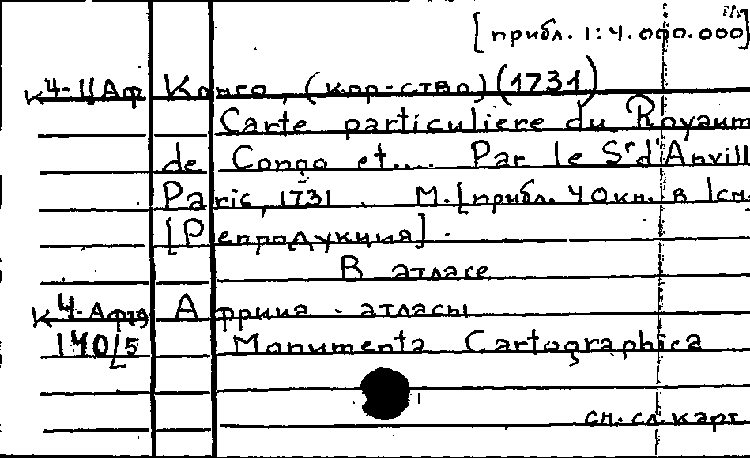 [прибл. 1:4.000.000]
К4-ЦАф Конго, (кор-ство) (1731)
Carte particuliere du Royaum
de Congo et.... Par le Sr d'Anvill
Paris, 1731. М. [прибл. 40км. в 1см.
[Репродукция].
В атласе
К4-Афр Африка - атласы
140/5 Monumenta Cartographica
см. сл. карт